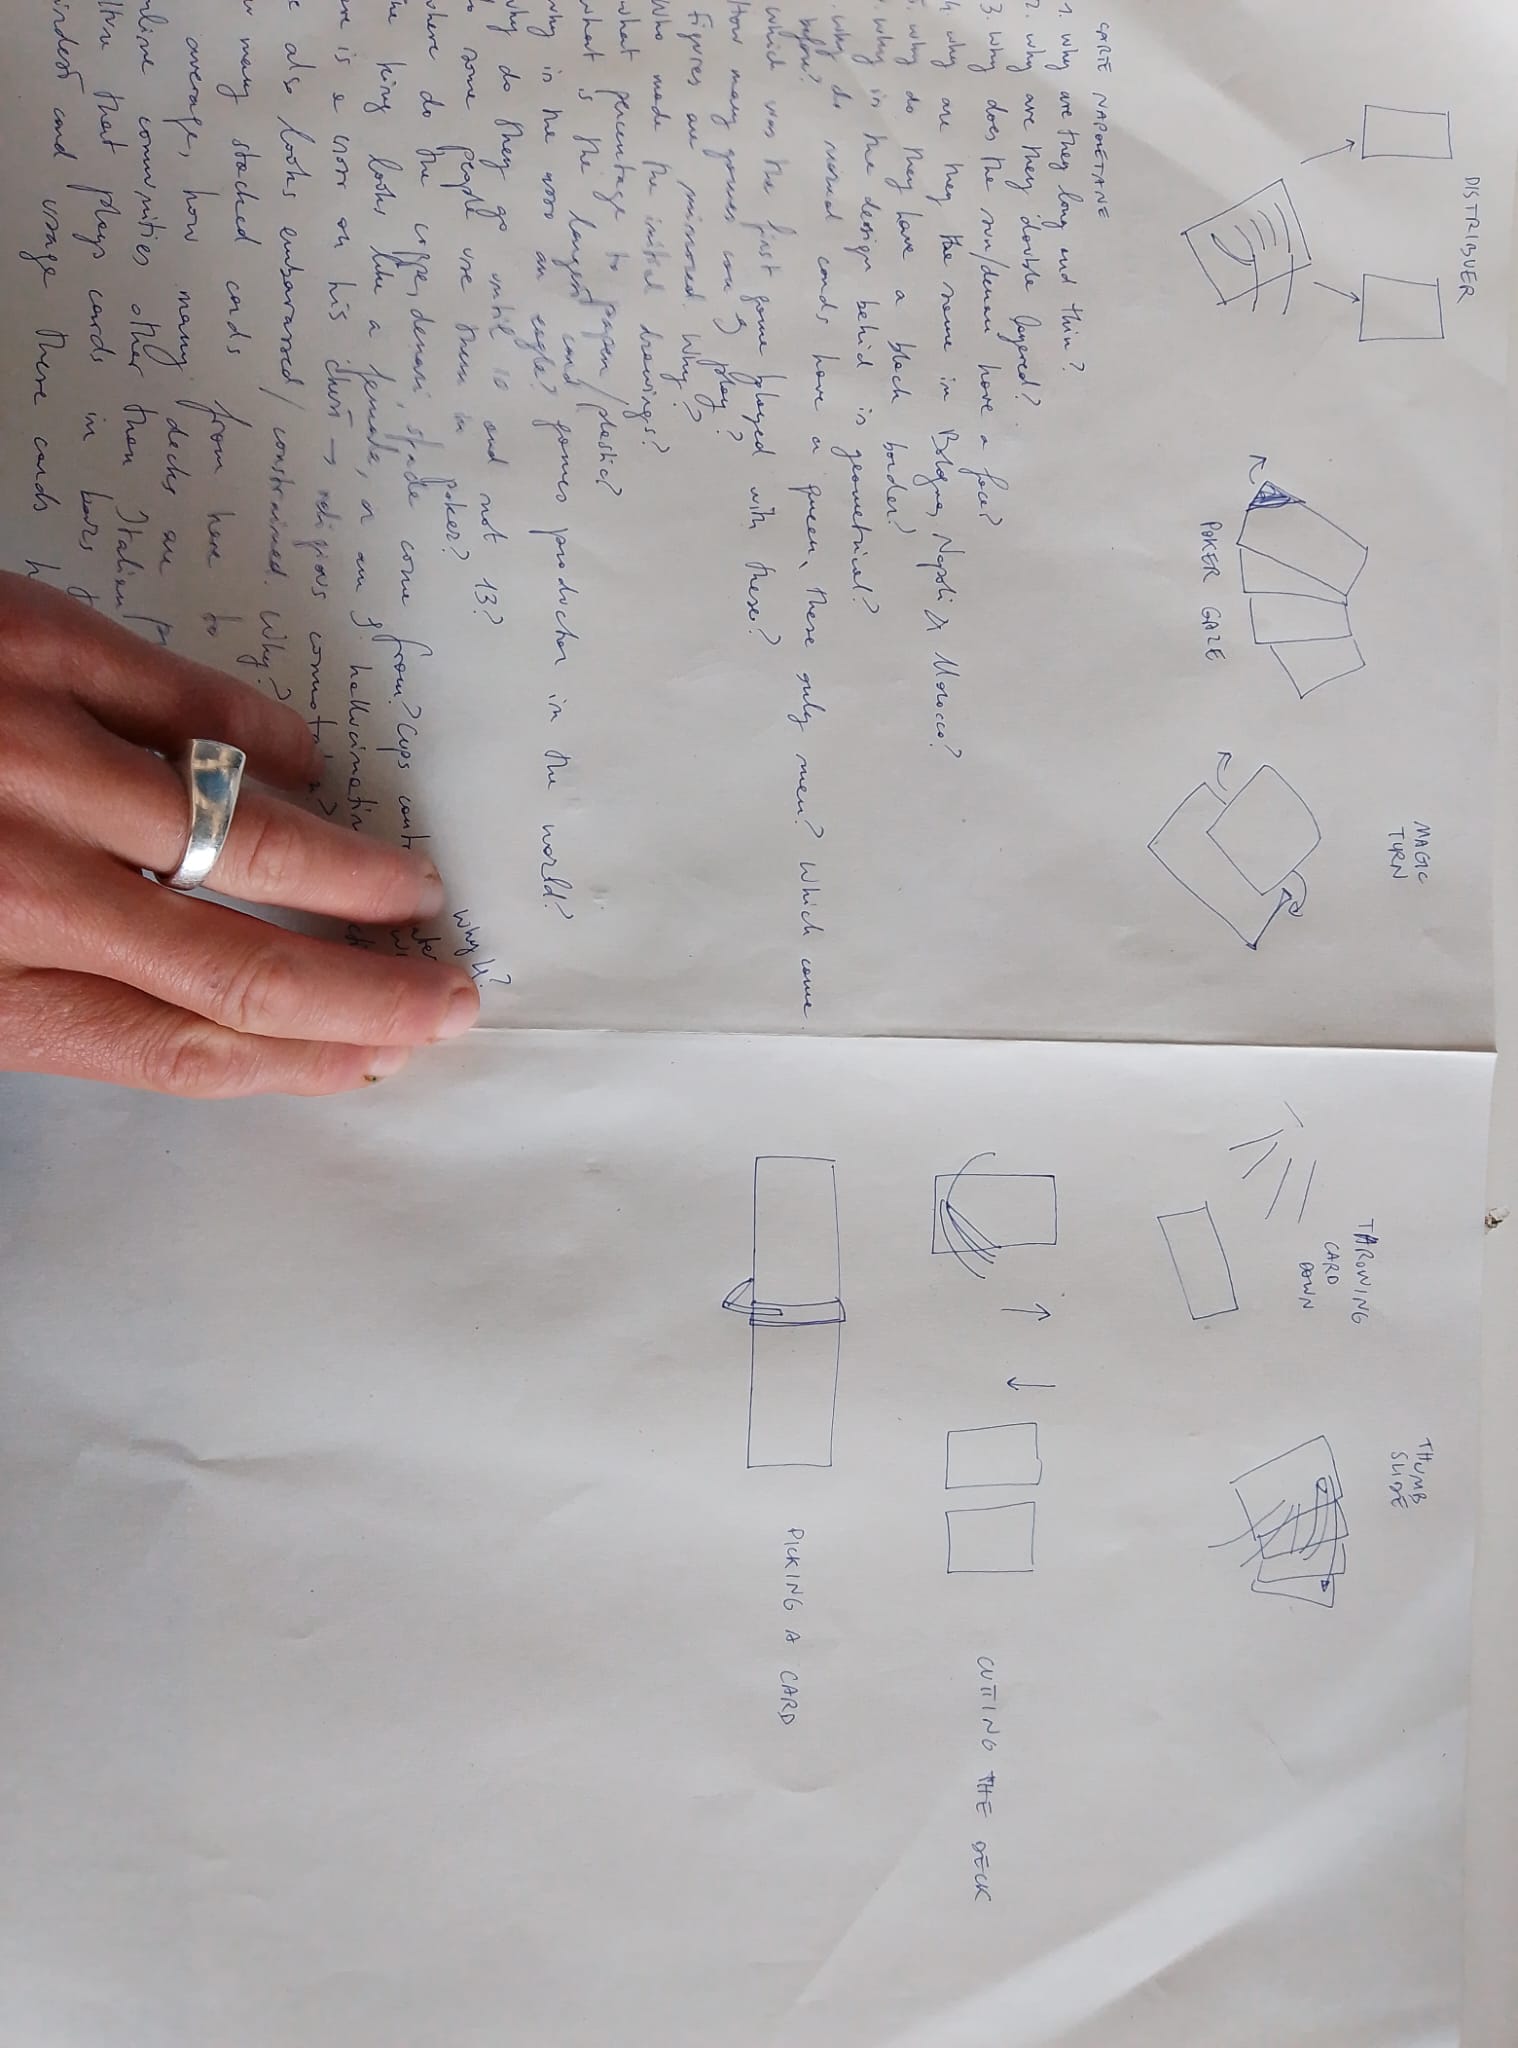 DISTRIBUER
POKER GAZE
MAGIC
TURN
THROWING
CARD
DOWN
THUMB
SLIDE
CUTTING THE DECK
PICKING A CARD
CARTE NAPOLETANE
1. why are they long and thin?
2. why are they double layered?
3. why does the sun/denari have a face?
4. why are they the same in Bologna, Napoli & Morocco?
5. why do they have a black border?
why in the design behid is geometrical?
why do normal cards have a queen, these only men? Which come
before?
which was the first game played with these?
How many games can y play?
Figures are mirrored. Why?
Who made the initial drawings?
what percentage to paper/plastic?
what is the largest card games productor in the world?
why in the asso an eagle?
why do they go until 10 and not 13?
do some people use them in poker? why 4?
where do the coppe, denari, spade come from? Cups
the king looks like a female, or am y
is a on his chest → religious
also looks embarassed / constrained. Why?
many stacked cards from here to
average, how many decks are
communities other than Italian
that plays cards in bars
and usage these cards